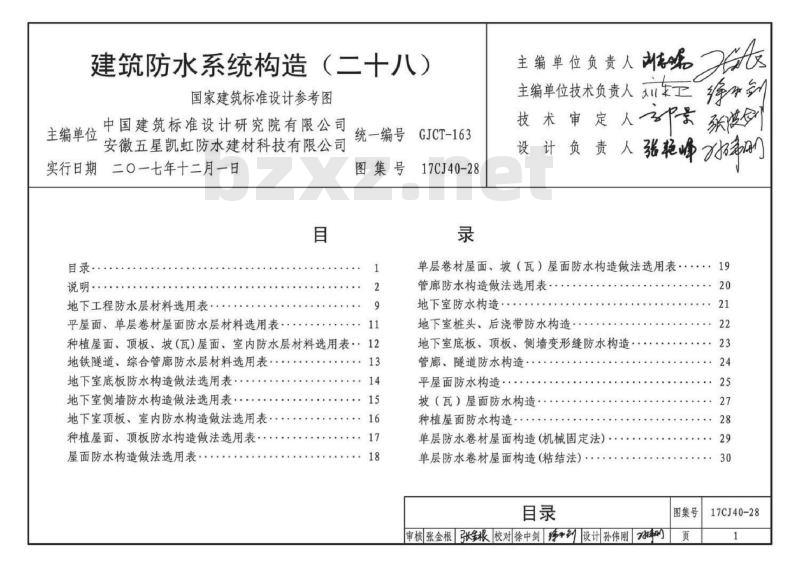 建筑防水系统构造（二十八）
国家建筑标准设计参考图
主编单位 中国建筑标准设计研究院有限公司
安徽五星凯虹防水建材科技有限公司
统一编号 GJCT-163
实行日期 二〇一七年十二月一日
图集号 17CJ40-28
主编单位负责人
主编单位技术负责人
技术审定人
设计负责人 张艳峰
bzxz.net
目 录
目录 1
说明 2
地下工程防水层材料选用表 9
平屋面、单层卷材屋面防水层材料选用表 11
种植屋面、顶板、坡(瓦)屋面、室内防水层材料选用表 12
地铁隧道、综合管廊防水层材料选用表 13
地下室底板防水构造做法选用表 14
地下室侧墙防水构造做法选用表 15
地下室顶板、室内防水构造做法选用表 16
种植屋面、顶板防水构造做法选用表 17
屋面防水构造做法选用表 18
单层卷材屋面、坡（瓦）屋面防水构造做法选用表 19
管廊防水构造做法选用表 20
地下室防水构造 21
地下室桩头、后浇带防水构造 22
地下室底板、顶板、侧墙变形缝防水构造 23
管廊、隧道防水构造 24
平屋面防水构造 25
坡（瓦）屋面防水构造 27
种植屋面防水构造 28
单层防水卷材屋面构造(机械固定法) 29
单层防水卷材屋面构造(粘结法) 30
目录
图集号 17CJ40-28
审核 张金根 校对 徐中剑 设计 孙伟刚 页 1